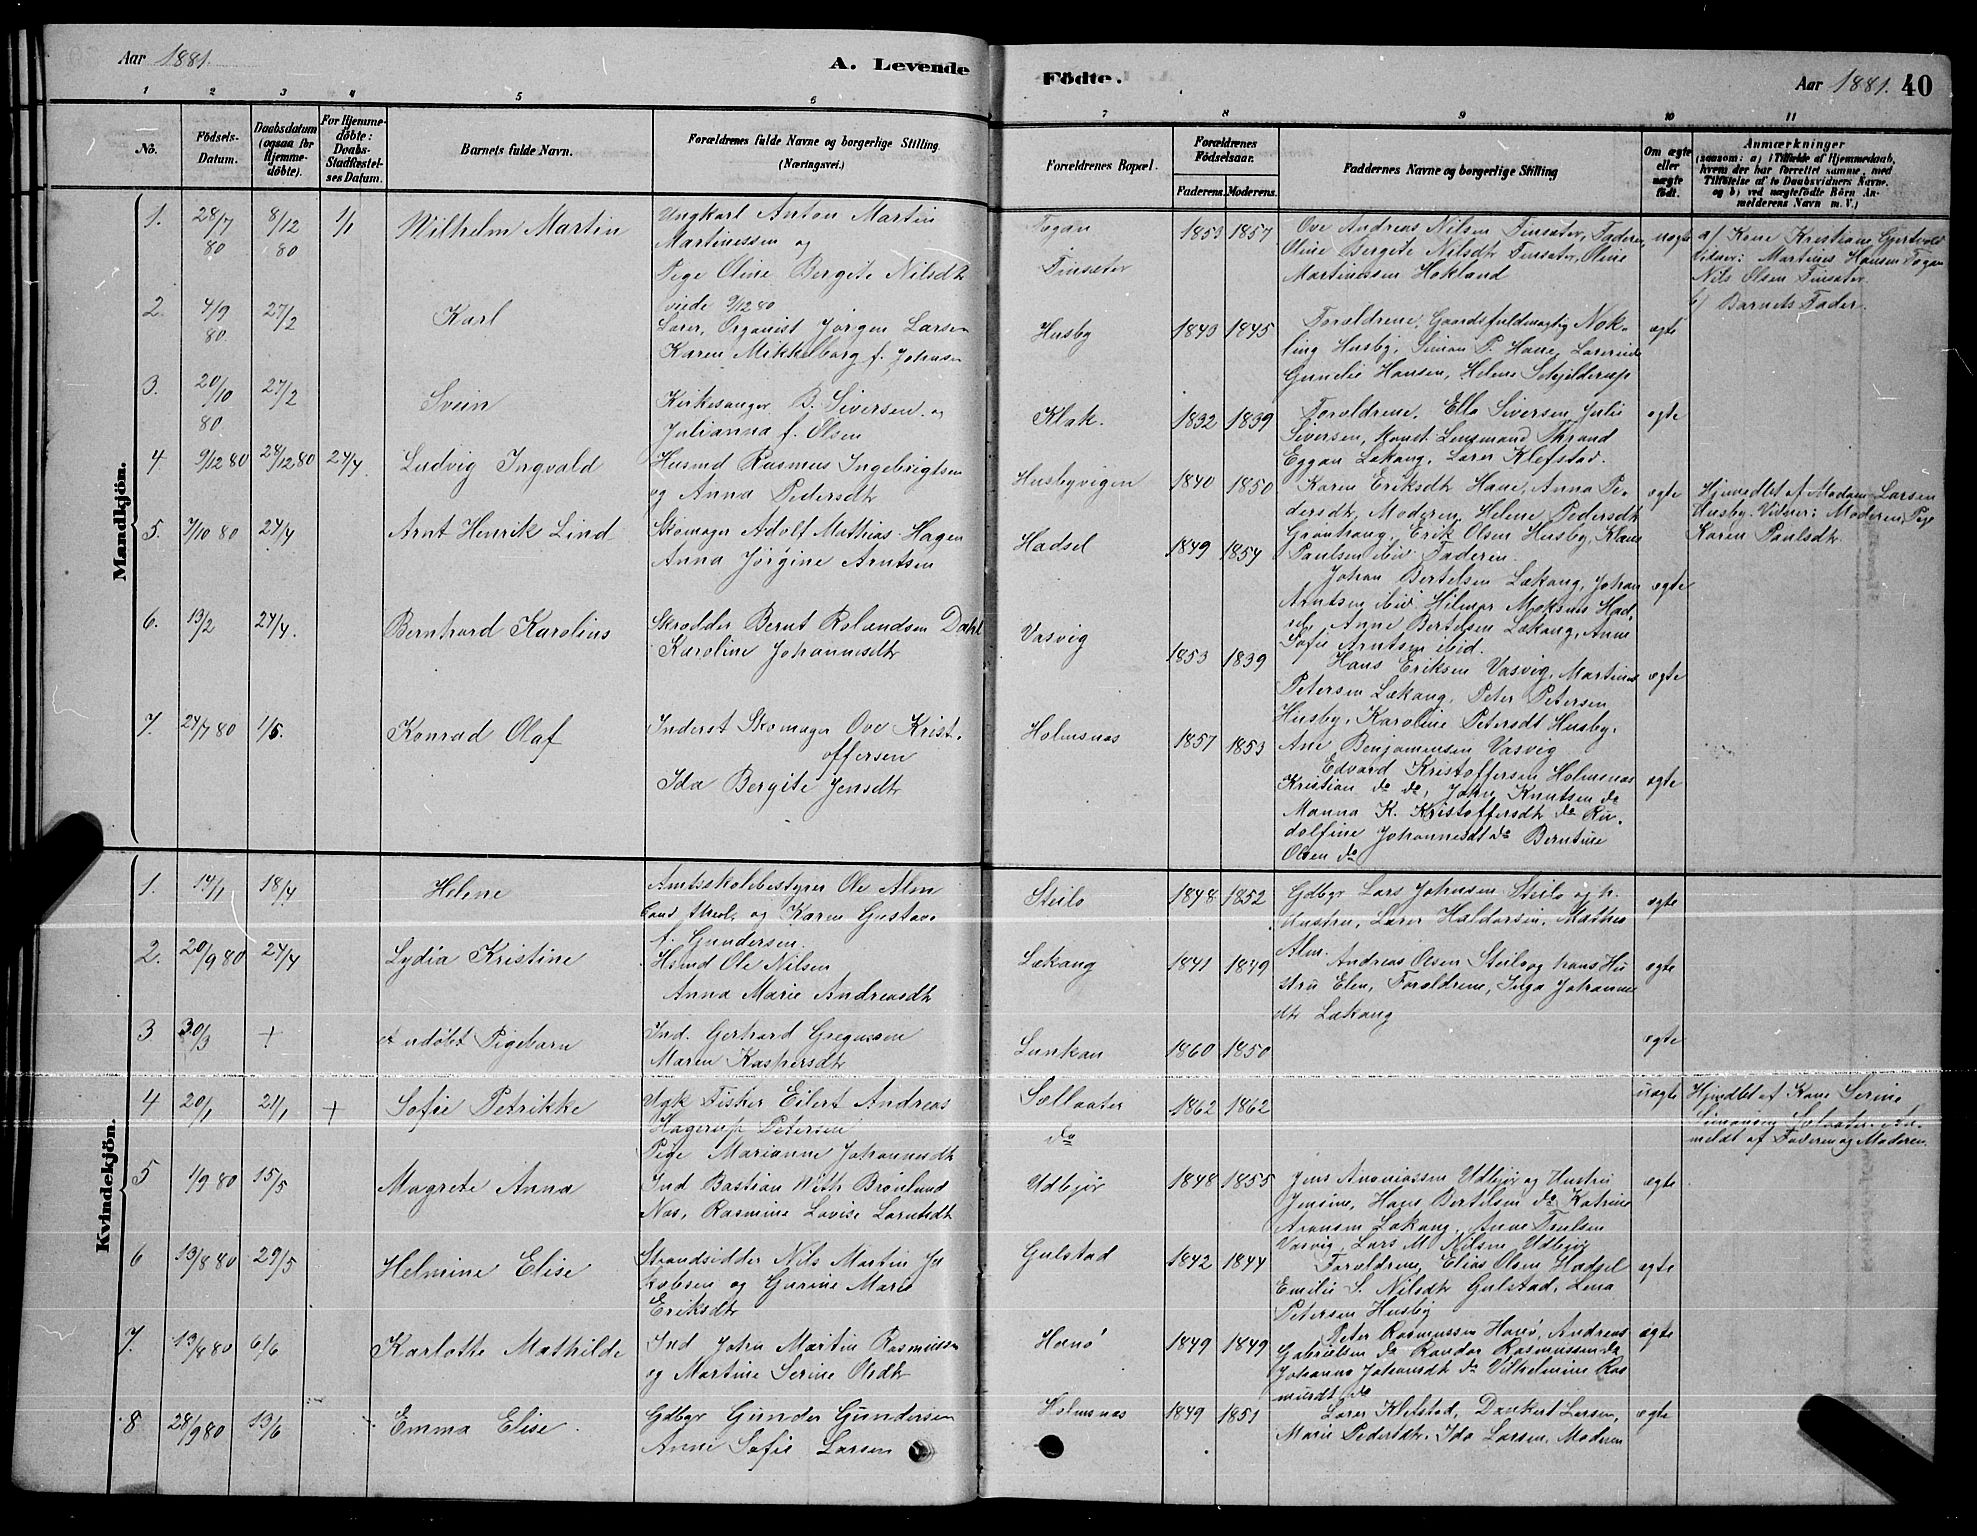 Aar 1881.
A. Levende Födte.
Aar 1881. 40
1 2 3 4 5 6 7 8 9 10 11
No.
Födsels-Datum.
Daabsdatum (ogsaa for Hjemmedöbte).
For Hjemmedöbte: Daabs-Stadfæstelses Datum.
Barnets fulde Navn.
Forældrenes fulde Navne og borgerlige Stilling. (Næringsvei.)
Forældrenes Bopæl.
Forældrenes Födselsaar.
Faderens. Moderens.
Faddernes Navne og borgerlige Stilling
Om ægte eller uægte födt.
Anmærkninger
(saasom: a) i Tilfælde af Hjemmedaab, hvem der har forrettet samme, med Tilföielse af to Daabsvidners Navne. og b) ved uægtefödte Börn Anmelderens Navn m. V.)
Mandkjön.
1. 28/7 80 8/12 80 1/1 Wilhelm Martin
Ungkarl Anton Martin
Martinussen og
Pige Oline Bergite Nilsdtr
viede 9/12 80
Togan
Finsæter
1853 1857
Ove Andreas Nilsen Finsæter, Faderen,
Oline Bergite Nilsdtr Finsæter, Oline
Martinussen Hokland
uægte
a) Kone Kristiane Gjertvold
Vidner: Martinus Hansen Togan
Nils Olsen Finsæter
b) Barnets Fader.
2. 4/9 80 27/2 Karl
Lærer, Organist Jörgen Larsen
Karen Mikkelborg f. Johnsen
Husby
1840 1845
Forældrene, Gaardsfuldmægtig Nok-
ling Husby, Simon P. Hane, Lærerinde
Gunelie Hansen, Helene Schjelderup
ægte
3. 20/10 80 27/2 Svein
Kirkesanger B. Siversen og
Julianna f. Olsen
Klak.
1832 1839
Forældrene, Ella Siversen, Julie
Siversen, Konst. Lensmand Thrand
Eggan Lekang, Lærer Klefstad.
ægte
4 9/12 80 28/12 80 24/4 Ludvig Ingvald
Husmd Rasmus Ingebrigtsen
og Anna Pedersdtr
Husbyvigen
1840 1850
Karen Eriksdtr Hane, Anna Pe-
dersdtr, Moderen, Helene Pedersdtr
Grönhaug, Erik Olsen Husby, Klaus
Paulsen ibid. Faderen.
ægte
Hjmedbt af Madam Larsen
Husby. Vidner: Moderen, Pige
Karen Paulsdtr.
5. 7/10 80 24/4 Arnt Henrik Lind
Skomager Adolf Mathias Hagen
Anna Jørgine Arntsen
Hadsel
1849 1854
Johan Bertelsen Lekang, Johan
Arntsen ibid. Hilmar Maksns Had-
sel, Anne Bertelsen Lekang, Anne
Sofie Arntsen ibid.
ægte
6. 13/2 24/4. Bernhard Karolius
Skrædder Bernt Rolandsen Dahl
Karoline Johannesdtr
Vasvig
1853 1839
Hans Eriksen Vasvig, Martinus
Petersen Lekang, Peter Petersen
Husby, Karoline Petersdt Husby,
Ane Benjaminsen Vasvig
ægte
7. 24/7 80 1/5. Konrad Olaf
Inderst Skomager Ove Krist-
offersen
Ida Bergite Jensdtr
Holmsnæs
1857 1853
Edvard Kristoffersen Holmsnæs
Kristian do do, John Knutsen do
Manna K. Kristoffersdtr do Ru-
dolfine Johannesdt do Berntine
Olsen do
ægte
Kvindekjön.
1. 14/1 18/4 Helene
Amtsskolebestyrer Ole Alm
Cand. theol. og Karen Gustava
f. Gundersen.
Steilo
1848 1852
Gdbgr Lars Johnsen Steilo og h.
Hustru, Lærer Haldorsen, Mathea
Alm.
ægte
2. 20/9 80 24/4 Lydia Kristine
Hsmd Ole Nilsen
Anna Marie Andreasdtr
Lekang
1841 1849
Andreas Olsen Steilo og hans Hu
stru Elen, Forældrene, Inga Johannes
dtr Lekang
ægte
3 30/3 + et udöbt Pigebarn
Ind. Gerhard Gregussen
Maren Kaspersdtr
Lunkan
1860 1850
ægte
4 20/1 21/1 + Sofie Petrikke
Ugk Fisker Eilert Andreas
Hagerup Petersen
Pige Marianne Johannesdtr
Sellæter
do
1862 1862
uægte
Hjmdbt af Kone Serine
Simonsen Selæter. An-
meldt af Faderen og Moderen.
5 4/9 80 15/5 Magrete Anna
Ind Bastian With Brönlund
Næs, Rasmine Lovise Larntsdtr
Udbjör
1848 1855
Jens Ananiassen Udbjör og Hustru
Jensine, Hans Bertelsen do Katrine
Aronsen Lekang, Anne
Vasvig, Lars M. Nilsen Udbjör
ægte
6 13/8 80 29/5 Helmine Elise
Strandsidder Nils Martin Ja
kobsen og Gurine Marie
Eriksdtr
Gulstad
1842 1844
Forældrene, Elias Olsen Hadsel
Emilie S. Nilsdtr Gulstad, Lena
Petersen Husby
ægte
7. 13/8 80 6/6 Karlotte Mathilde
Ind John Martin Rasmussen
og Martine Serine Olsdtr
Hanö
1849 1849
Peter Rasmussen Hanö, Andreas
Gabrielsen do Randor Rasmussen do
Johanna Johansdtr do Vilhelmine Ras
musdt do
ægte
8 28/9 80 13/6 Emma Elise
Gdbgr Gunder Gundersen
Anne Sofie Larsen
Holmsnæs
1849 1851
Lærer Klefstad, Dankert Larsen,
Marie Pedersdtr, Ida Larsen, Moderen
ægte